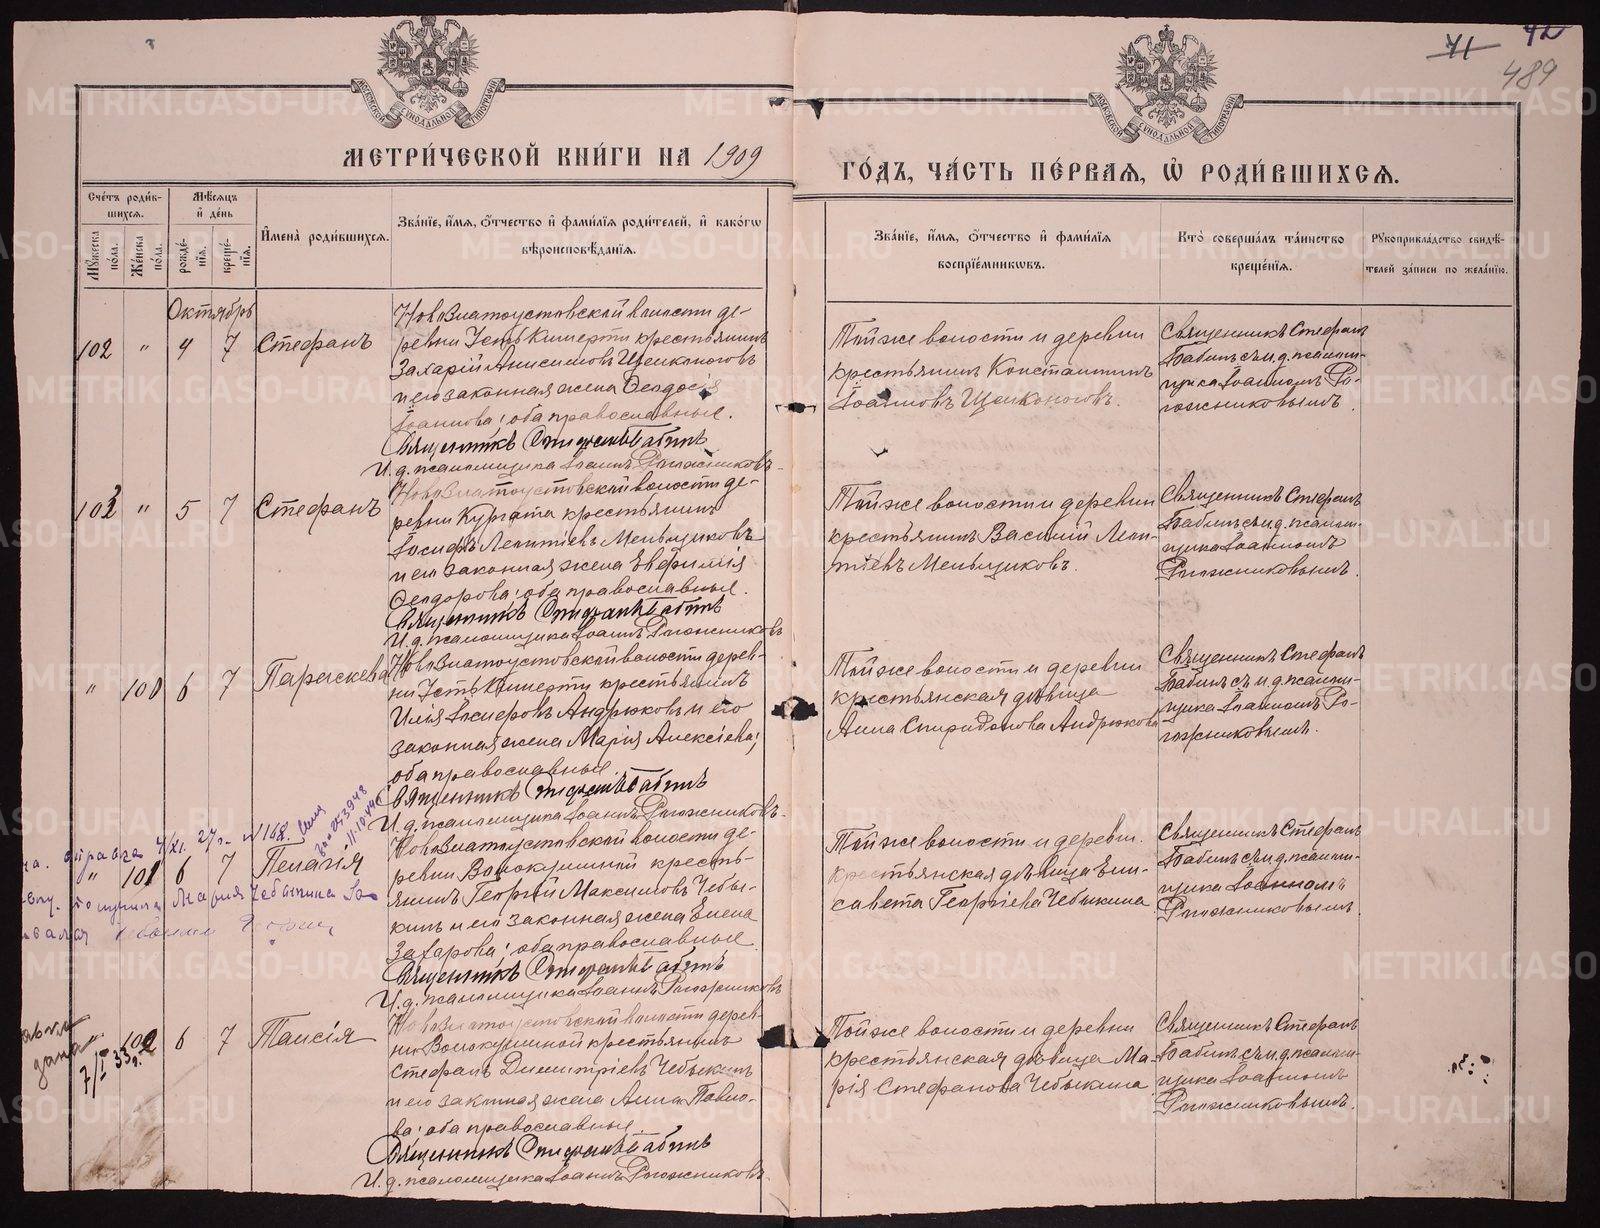 71 42
489
МОСКОВСКОЙ СѴНОДАЛЬНОЙ ТИПОГРАФІИ
МОСКОВСКОЙ СѴНОДАЛЬНОЙ ТИПОГРАФІИ
МЕТРИ́ЧЕСКОЙ КНИ́ГИ НА 1909
ГО́ДЪ, ЧА́СТЬ ПЕ́РВАѦ, Ѡ҆ РОДИ́ВШИХСѦ.
Сче́тъ роди́в-
шихсѧ.
Мѣ́сѧцъ
и҆ де́нь
Мꙋ́жеска
по́ла.
Же́нска
по́ла.
рожде́-
нїѧ.
креще́-
нїѧ.
И҆мена̀ роди́вшихсѧ.
Зва́нїе, и҆́мѧ, ѻ҆́тчество и҆ фами́лїѧ роди́телей, и҆ како́гѡ
вѣроисповѣ́данїѧ.
Зва́нїе, и҆́мѧ, ѻ҆́тчество и҆ фами́лїѧ
воспрїе́мникѡвъ.
Кто̀ соверша́лъ та́инство
креще́нїѧ.
Рꙋкоприкла́дство свидѣ́-
телей за́писи по жела́нїю.
Октябрь
102 " 4 7 Стефанъ
НовоЗлатоустовской волости де-
ревни Усть Киперти крестьянинъ
Захарій Анисимовъ Щелконоговъ
и его законная жена Ѳеодосія
Іоаннова; оба православные.
Священникъ Стефанъ Бабинъ
И. д. псаломщика Іоаннъ Рогожниковъ.
Тойже волости и деревни
крестьянинъ Константинъ
Іоанновъ Щелконоговъ.
Священникъ Стефанъ
Бабинъ съ и. д. псалом-
щика Іоанномъ Ро-
гожниковымъ.
103 " 5 7 Стефанъ
НовоЗлатоустовской волости де-
ревни Кургата крестьянинъ
Іосифъ Леонтіевъ Меньщиковъ
и его законная жена Евфимія
Ѳеодорова; оба православные.
Священникъ Стефанъ Бабинъ
И. д. псаломщика Іоаннъ Рогожниковъ
Тойже волости и деревни
крестьянинъ Василій Леон-
тіевъ Меньщиковъ.
Священникъ Стефанъ
Бабинъ съ и. д. псалом-
щика Іоанномъ
Рогожниковымъ.
" 100 6 7 Параскева
НовоЗлатоустовской волости дерев-
ни Усть Киперти крестьянинъ
Илія Андрюковъ и его
законная жена Марія Алексіева;
оба православные.
Священникъ Стефанъ Бабинъ
И. д. псаломщика Іоаннъ Рогожниковъ.
Тойже волости и деревни
крестьянская дѣвица
Анна Спиридонова Андрюкова
Священникъ Стефанъ
Бабинъ съ и. д. псалом-
щика Іоанномъ Ро-
гожниковымъ.
справка 4/XI. 27 г. № 168.
" 101 6 7 Пелагія
получила Мария Чебыкина
НовоЗлатоустовской волости де-
ревни Волокушиной кресть-
янинъ Георгій Максимовъ Чебы-
кинъ и его законная жена Елена
Захарова; оба православные
Священникъ Стефанъ Бабинъ
И. д. псаломщика Іоаннъ Рогожниковъ
Тойже волости и деревни.
крестьянская дѣвица Ели-
савета Георгіева Чебыкина
Священникъ Стефанъ
Бабинъ съ и. д. псалом-
щика Іоанномъ
Рогожниковымъ.
дана
7/I 33 г.
" 102 6 7 Таисія
НовоЗлатоустовской волости дерев-
ни Волокушиной крестьянинъ
Стефанъ Димитріевъ Чебыкинъ
и его законная жена Анна Павло-
ва; оба православные.
Священникъ Стефанъ Бабинъ
И. д. псаломщика Іоаннъ Рогожниковъ.
Тойже волости и деревни
крестьянская дѣвица Ма-
рія Стефанова Чебыкина
Священникъ Стефанъ
Бабинъ съ и. д. псалом-
щика Іоанномъ
Рогожниковымъ.
METRIKI.GASO-URAL.RU